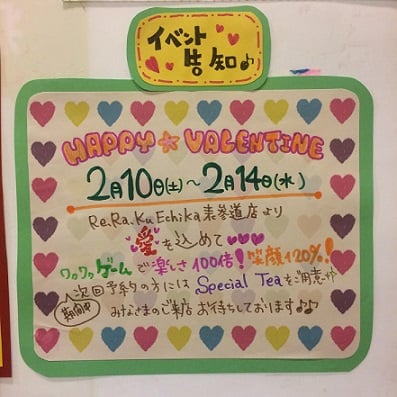 イベント
告知♪
HAPPY☆VALENTINE
2月10日(土)～2月14日(水)
Re.Ra.Ku Echika表参道店より
愛を込めて♥♥♥
ワクワクゲームで楽しさ100倍!笑顔120%!
次回予約の方には Special Teaをご用意♡
期間中
みなさまのご来店お待ちしております♪♪